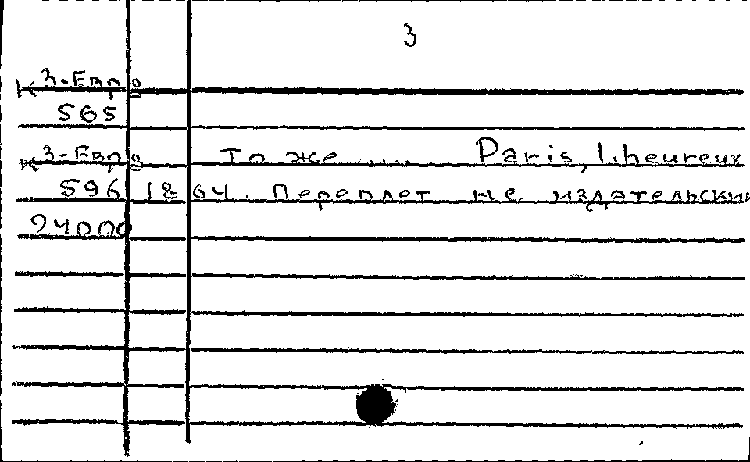 3
К З-Евр.
565
К З-Евр. То же .... Paris, l.heureux
596 1864. Переплет не издательски
24000